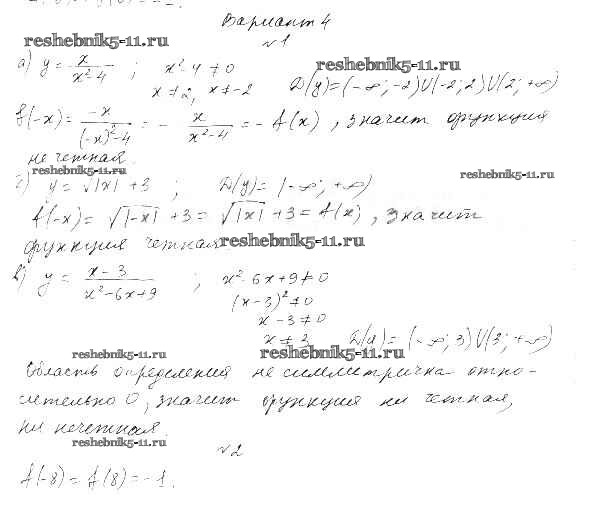 Вариант 4
reshebnik5-11.ru
№1
а) y = x/(x²-4) ; x²-4≠0
reshebnik5-11.ru
x≠2, x≠-2 D(y)=(-∞;-2)U(-2;2)U(2;+∞)
f(-x) = -x/((-x)²-4) = - x/(x²-4) = -f(x), значит функция
нечетная.
reshebnik5-11.ru
reshebnik5-11.ru
y = √|x| + 3 ; D(y) = (-∞; +∞)
f(-x) = √|-x| + 3 = √|x| + 3 = f(x), значит
функция четная
reshebnik5-11.ru
в) y = (x-3)/(x²-6x+9) ; x²-6x+9≠0
(x-3)²≠0
x-3≠0
x≠3 D(y)=(-∞;3)U(3;+∞)
reshebnik5-11.ru
reshebnik5-11.ru
Область определения не симметрична отно-
сительно 0, значит функция ни четная,
ни нечетная.
reshebnik5-11.ru
№2
f(-8) = f(8) = -1.